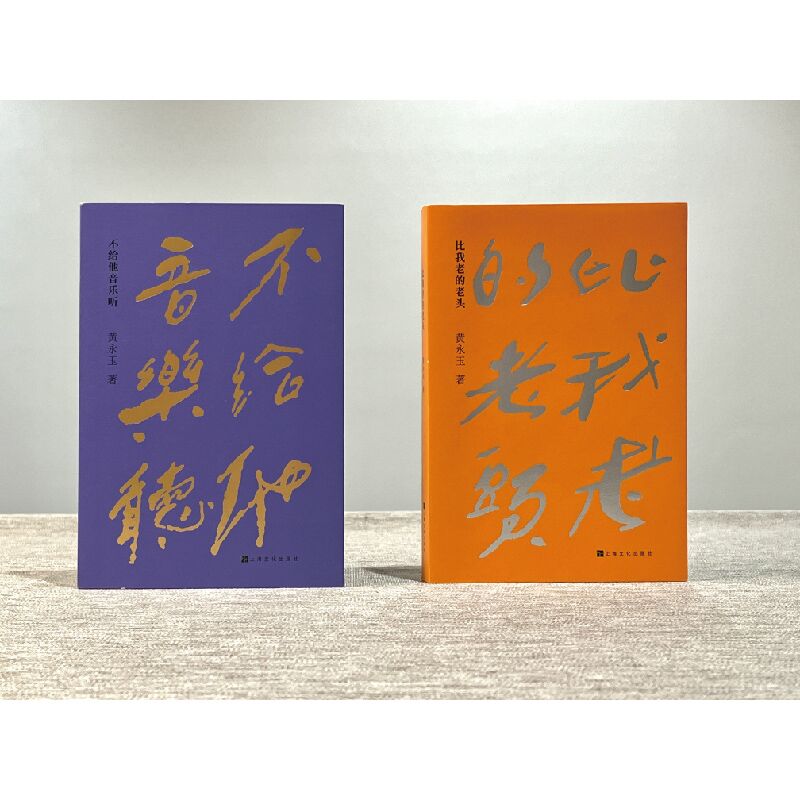 不给他音乐听
黄永玉 著
不给他
音樂聽
上海文化出版社
比我老的老头
黄永玉 著
比我老
的老頭
上海文化出版社